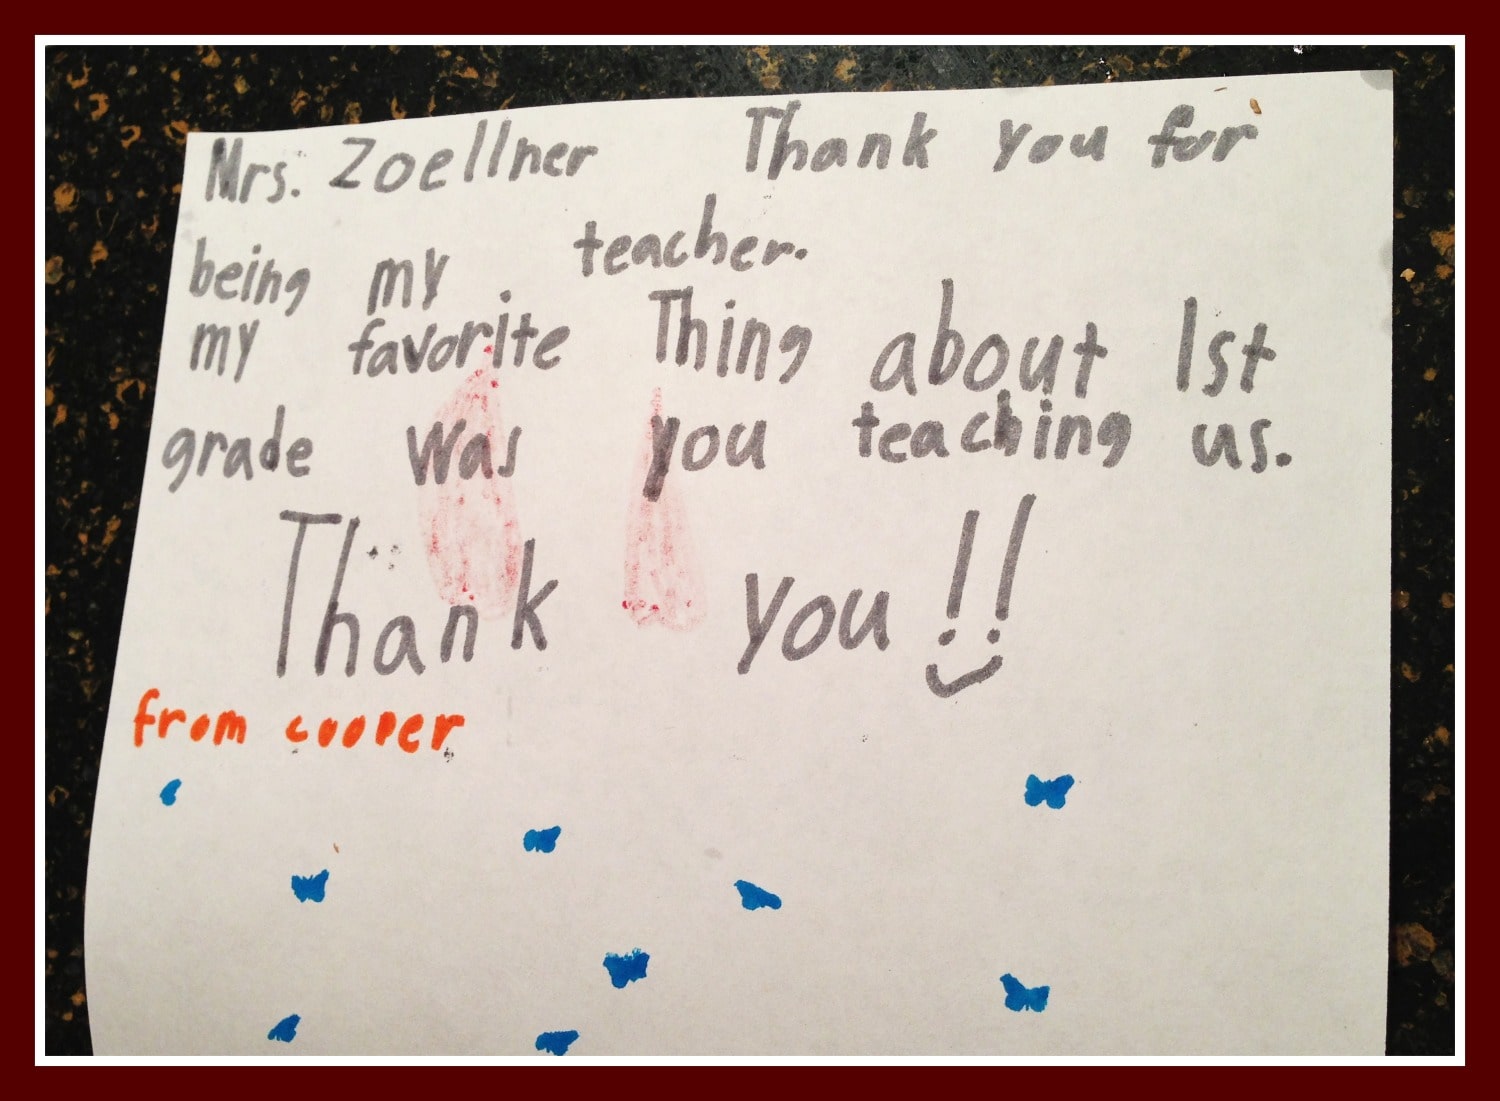 Mrs. Zoellner Thank you for
being my teacher.
my favorite Thing about 1st
grade was you teaching us.
Thank you!!
from cooper